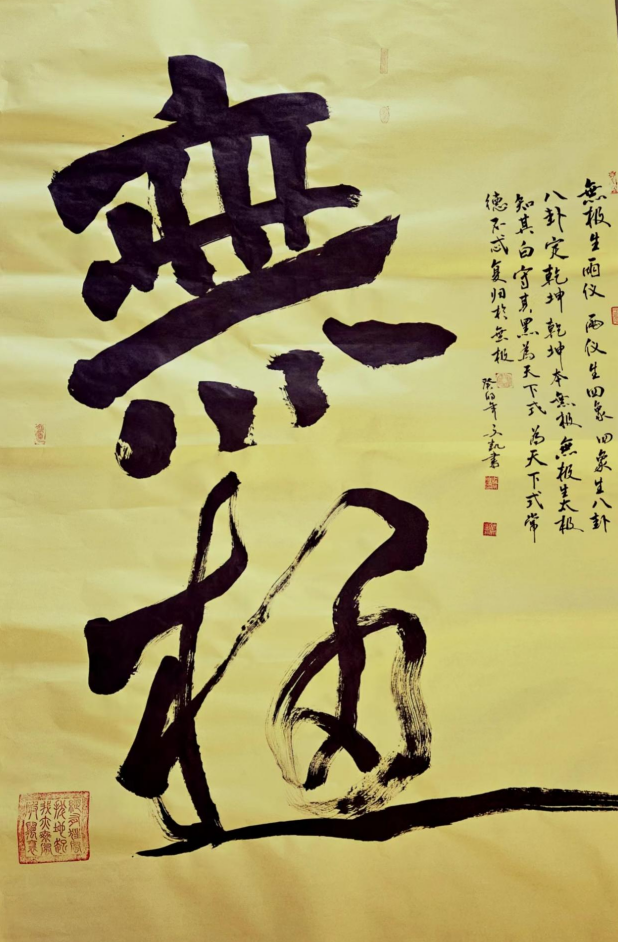 無極
無极生兩仪 兩仪生四象 四象生八卦
八卦定乾坤 乾坤本無极 無极生太极
知其白守其黑為天下式 為天下式常
德不忒复归於無极
癸卯年文凯書